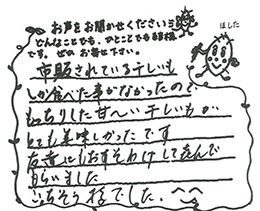 お声をお聞かせください
どんなことでも、ひとことでも結構
です。ぜひお寄せ下さい。
ほした
市販されている干しいも
しか食べた事がなかったので
もっちりした甘〜い干しいもが
とても美味しかったです
友達にもおすそわけして喜んで
もらいました
ごちそう様でした。^^